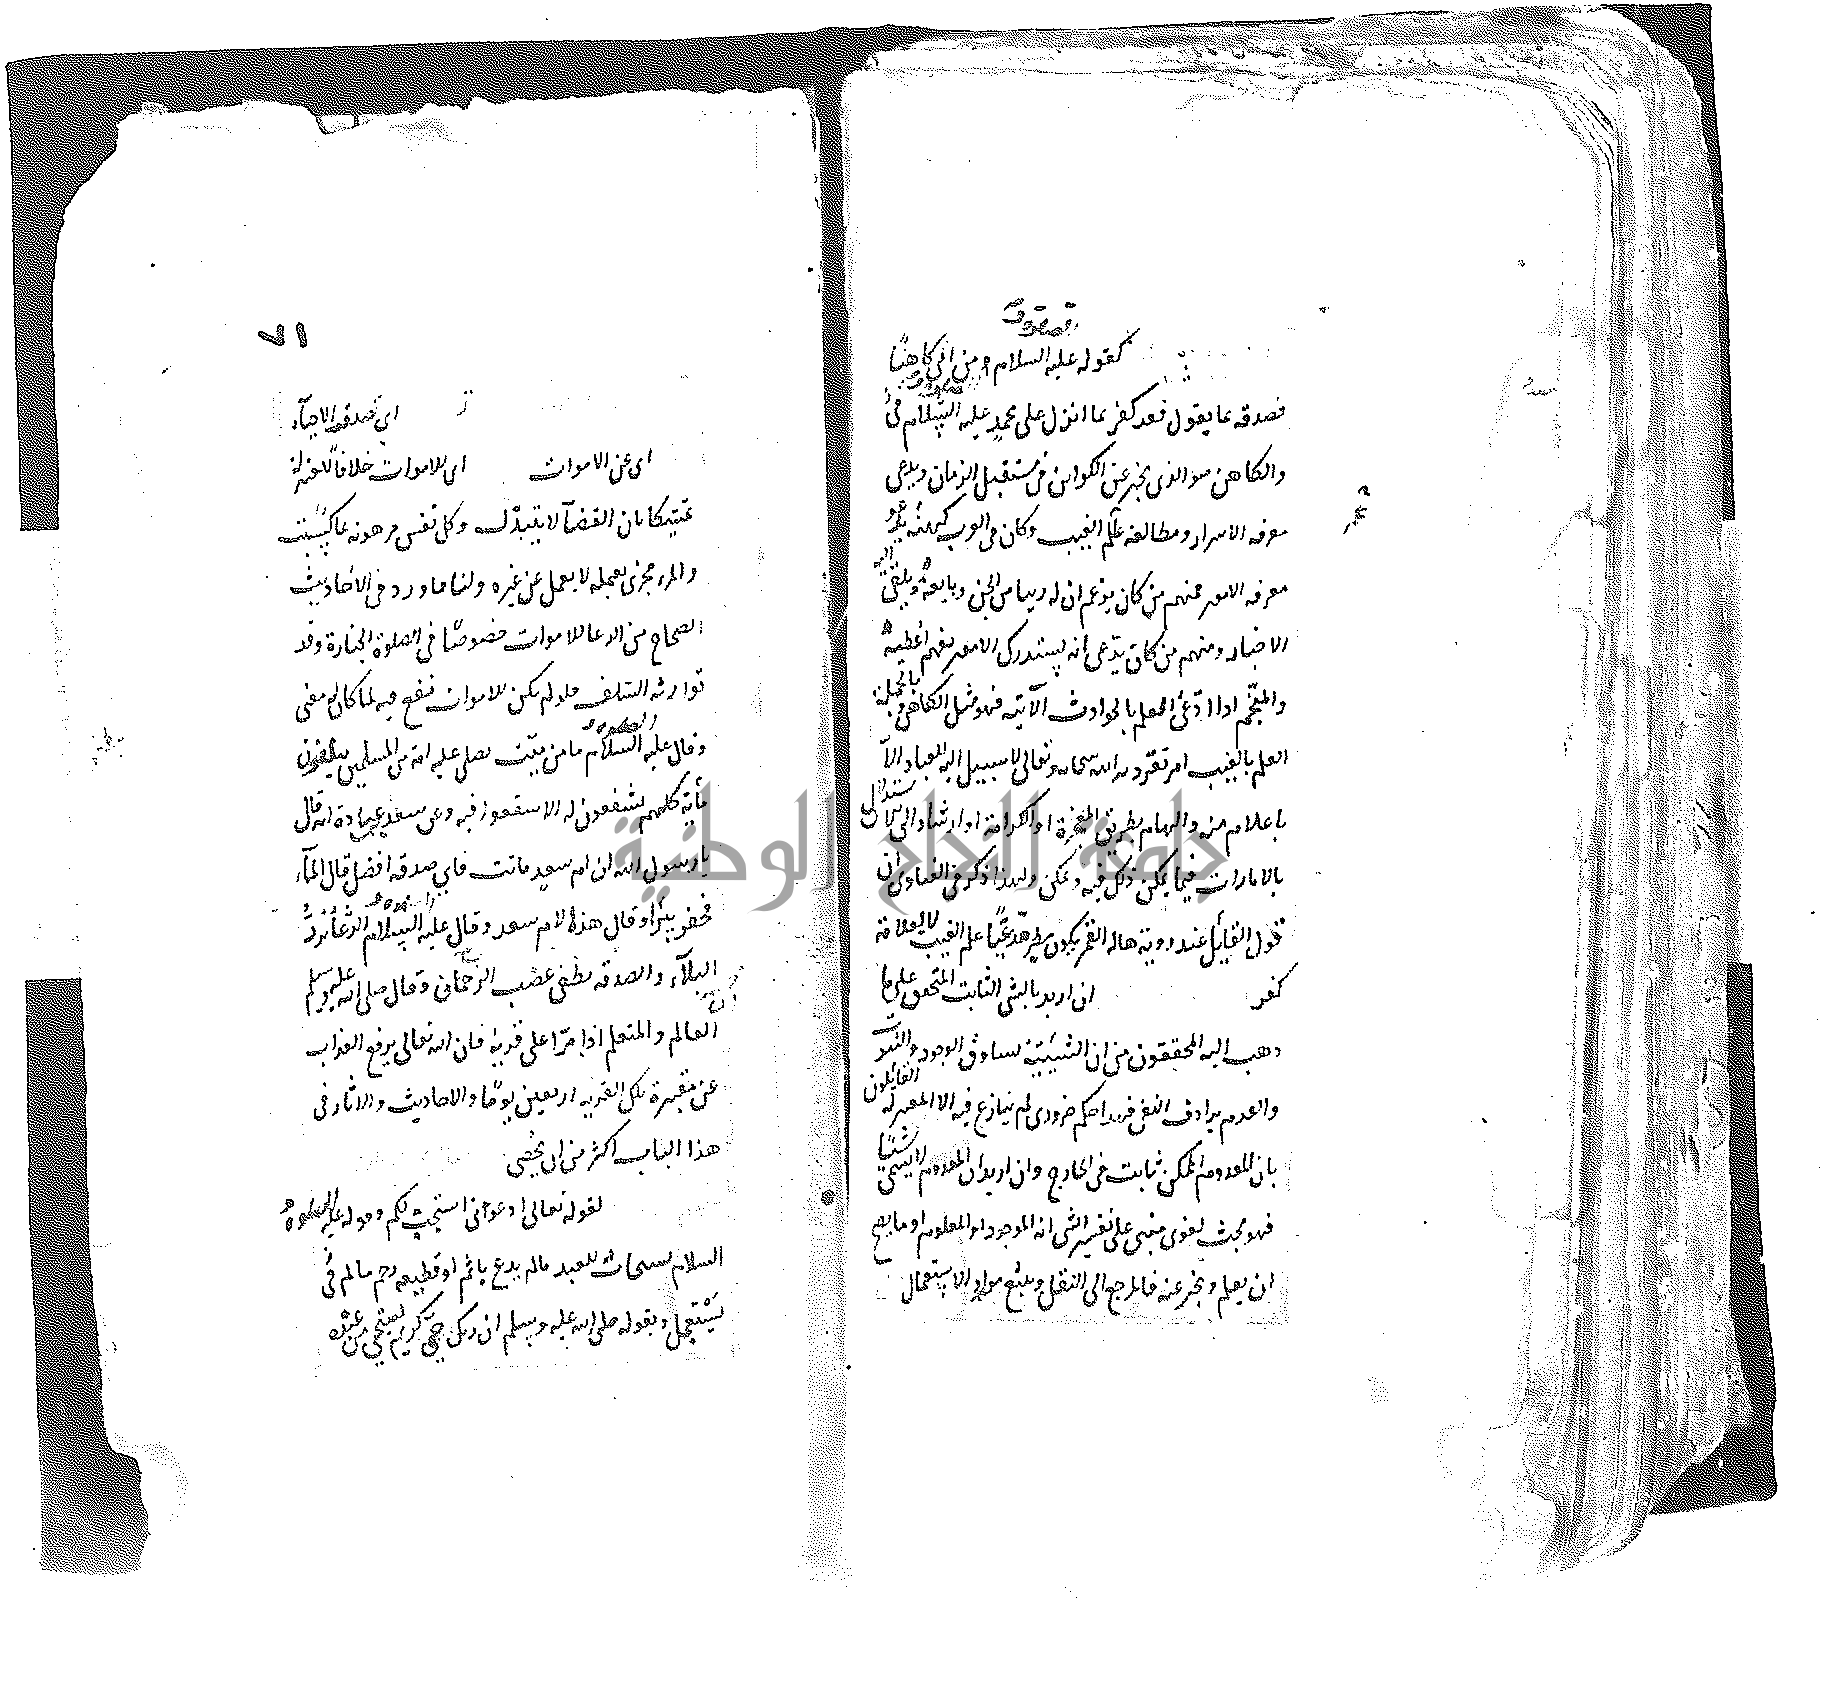 كقوله عليه السلام ومن اتى كاهنا
فصدقه بما يقول فقد كفر بما انزل على محمد عليه السلام
والكاهن هو الذى يخبر عن الكواين فى مستقبل الزمان ويدعى
معرفه الاسرار ومطالعة علم الغيب وكان فى العرب كهنة يدعو
معرفه الامور فمنهم من كان يزعم ان له رييا من الجن وتابعة ويلقى اليه
الاخبار ومنهم من كان يدعى انه يستدرك الامور بفهم اعطيه
والمنجم اذا ادعى العلم بالحوادث الآتية فهو مثل الكاهن وبالجملة
العلم بالغيب امر تفرد به الله سبحانه وتعالى لا سبيل اليه للعباد الا
باعلام منه والهام بطريق المعجزة او الكرامة او ارشاد الى الاستدلال
بالامارات فيما يمكن ذلك فيه ولهذا ذكر فى الفتاوى ان
قول القايل عند روية هالة القمر يكون مطر مدعيا علم الغيب لا بعلامة
كفر
ان اريد بالشى الثابت المتحقق على ما
ذهب اليه المحققون من ان الشيئية تساوق الوجود والثبوت
والعدم يرادف النفى فهذا حكم ضرورى لم ينازع فيه الا المعتزلة القايلون
بان المعدوم الممكن ثابت فى الخارج وان اريد ان المعدوم لا يسمى شئيا
فهو بحث لغوى مبنى على تفسير الشى انه الموجود او المعلوم او ما يصح
ان يعلم ويخبر عنه فالمرجع الى النقل وتتبع موارد الاستعمال
٧١
اى صدقه الاحياء
اى عن الاموات اى للاموات خلافا للمعتزلة
تمسكا بان القضآ لا يتبدل وكل نفس مرهونة بما كسبت
والمرء مجزى بعمله لا بعمل عن غيره ولنا ما ورد فى الاحاديث
الصحاح من الدعا للاموات خصوصا فى الصلوة الجنازة وقد
توارثه السلف فلو لم يكن للاموات نفع فيه لما كان له معنى
وقال عليه السلام ما من ميت يصلى عليه امة من المسلمين يبلغون
مأية كلهم يشفعون له الا شفعوا فيه وعن سعد بن عبادة انه قال
يا رسول الله ان ام سعد ماتت فاى صدقه افضل قال المآء
فحفر بئرا وقال هذا لام سعد وقال عليه السلام الدعآ يرد
البلآء والصدقه تطفى غضب الرحمان وقال صلى الله عليه وسلم
العالم والمتعلم اذا مرا على قرية فان الله تعالى يرفع العذاب
عن مقبرة تلك القرية اربعين يوما والاحاديث والاثار فى
هذا الباب اكثر من ان يحصى
لقوله تعالى ادعونى استجب لكم وقوله عليه
السلام يستجاب للعبد مالم يدع باثم او قطيعه رحم مالم
يستعجل وبقوله صلى الله عليه وسلم ان ربكم حى كريم يستحيى من عبده
جامعة النجاح الوطنية